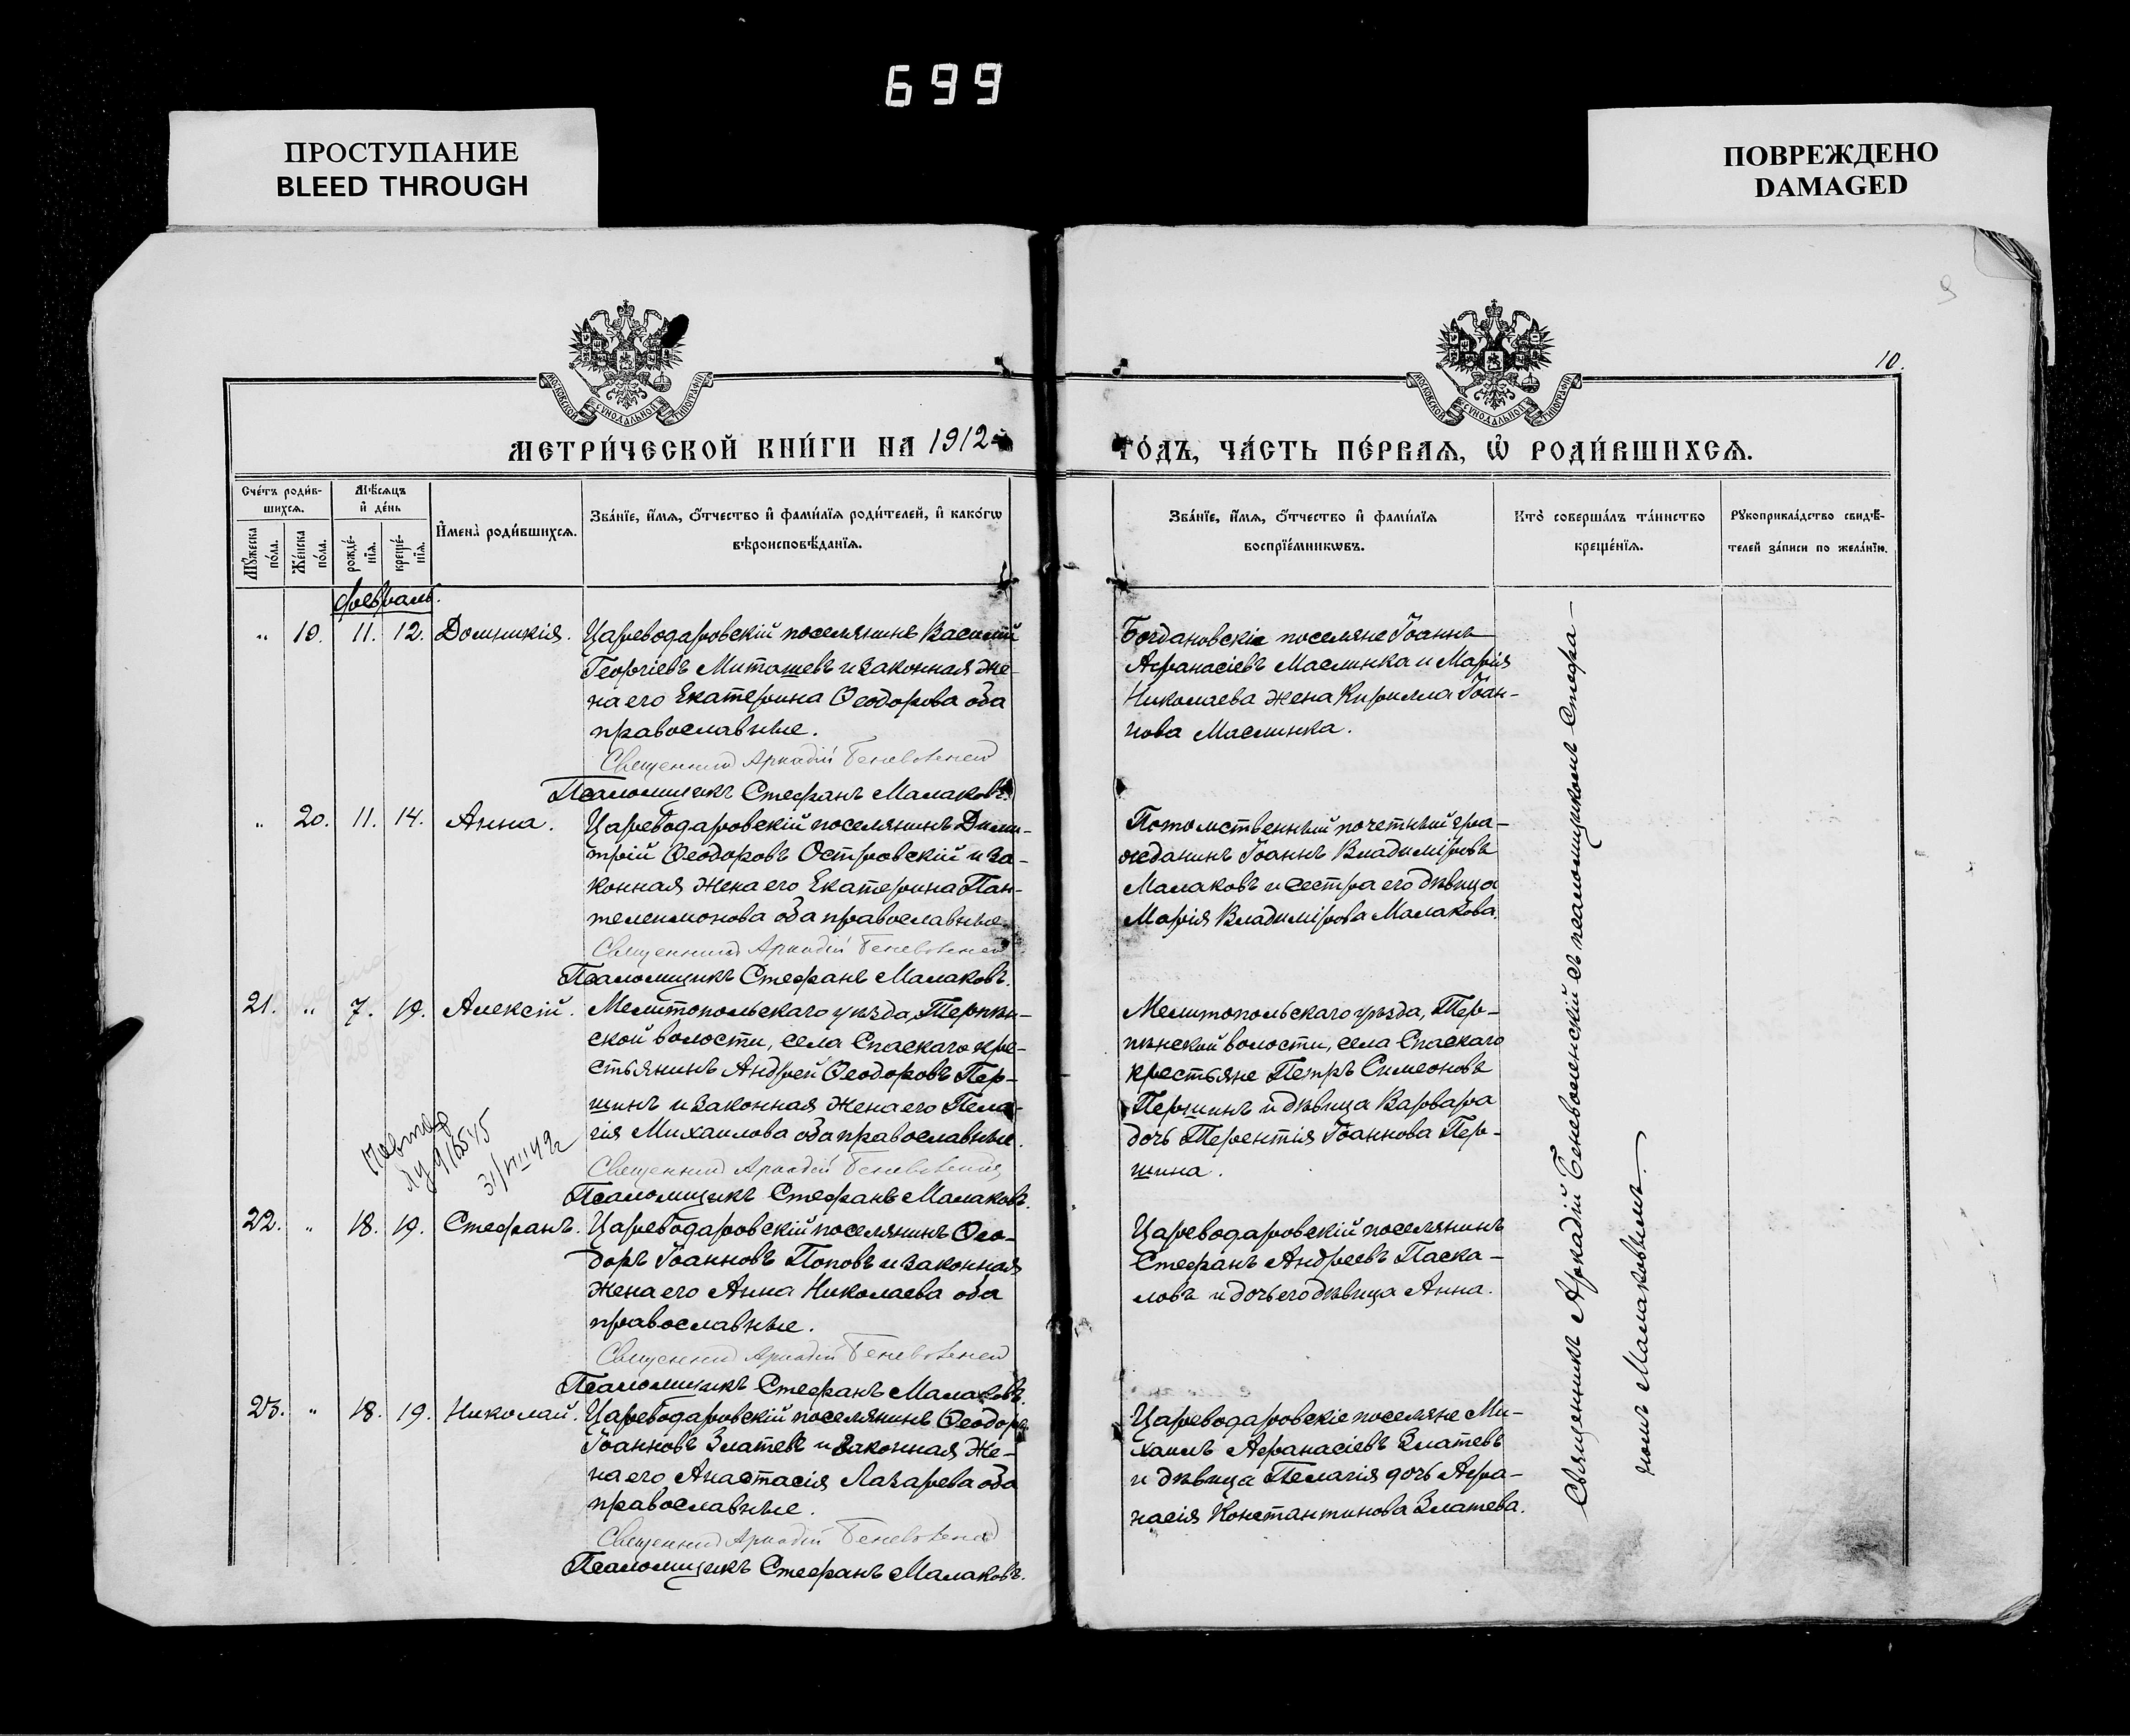 699
ПРОСТУПАНИЕ
BLEED THROUGH
ПОВРЕЖДЕНО
DAMAGED
9
10.
МОСКОВСКОЙ СѴНОДАЛЬНОЙ ТИПОГРАФІИ
МОСКОВСКОЙ СѴНОДАЛЬНОЙ ТИПОГРАФІИ
МЕТРИ́ЧЕСКОЙ КНИ́ГИ НА 1912
ГО́ДЪ, ЧА́СТЬ ПЕ́РВАѦ, Ѡ҆ РОДИ́ВШИХСѦ.
Сче́тъ роди́в-
шихсѧ.
Мꙋ́жеска по́ла.
Же́нска по́ла.
Мѣ́сѧцъ
и҆ де́нь
рожде́-
нїѧ.
креще́-
нїѧ.
И҆мена̀ роди́вшихсѧ.
Зва́нїе, и҆́мѧ, ѻ҆́тчество и҆ фами́лїѧ роди́телей, и҆ како́гѡ
вѣроисповѣ́данїѧ.
Зва́нїе, и҆́мѧ, ѻ҆́тчество и҆ фами́лїѧ
воспрїе́мникѡвъ.
Кто̀ соверша́лъ та́инство
креще́нїѧ.
Рꙋкоприкла́дство свидѣ́-
телей за́писи по жела́нїю.
Февраль.
" 19. 11. 12. Домникія. Цареводаровскій поселянинъ Василій
Георгіевъ Миташевъ и законная же-
на его Екатерина Ѳеодорова оба
православные.
Священникъ Аркадій Беневоленскій
Псаломщикъ Стефанъ Малаковъ.
Богдановскіе поселяне Іоаннъ
Афанасіевъ Маслинка и Марія
Николаева жена Кирилла Іоан-
нова Маслинка.
" 20. 11. 14. Анна. Цареводаровскій поселянинъ Дими-
трій Ѳеодоровъ Островскій и за-
конная жена его Екатерина Пан-
телеимонова оба православные.
Священникъ Аркадій Беневоленскій
Псаломщикъ Стефанъ Малаковъ.
Потомственный почетный гра-
жданинъ Іоаннъ Владиміровъ
Малаковъ и сестра его дѣвица
Марія Владимірова Малакова.
21. " 7. 19. Алексій. Мелитопольскаго уѣзда, Терпѣн-
ской волости, села Спаскаго кре-
стьянинъ Андрей Ѳеодоровъ Пер-
шинъ и законная жена его Пела-
гія Михаилова оба православные.
Священникъ Аркадій Беневоленскій
Псаломщикъ Стефанъ Малаковъ.
Мелитопольскаго уѣзда, Тер-
пѣнской волости, села Спаскаго
крестьяне Петръ Симеоновъ
Першинъ и дѣвица Варвара
дочь Терентія Іоаннова Пер-
шина.
22. " 18. 19. Стефанъ. Цареводаровскій поселянинъ Ѳео-
доръ Іоанновъ Поповъ и законная
жена его Анна Николаева оба
православные.
Священникъ Аркадій Беневоленскій
Псаломщикъ Стефанъ Малаковъ.
Цареводаровскій поселянинъ
Стефанъ Андреевъ Паска-
ловъ и дочь его дѣвица Анна.
23. " 18. 19. Николай. Цареводаровскій поселянинъ Ѳеодоръ
Іоанновъ Златевъ и законная же-
на его Анастасія Лазарева оба
православные.
Священникъ Аркадій Беневоленскій
Псаломщикъ Стефанъ Малаковъ.
Цареводаровскіе поселяне Ми-
хаилъ Афанасіевъ Златевъ
и дѣвица Пелагія дочь Афа-
насія Константинова Златева.
Священникъ Аркадій Беневоленскій съ псаломщикомъ Стефа-
номъ Малаковымъ.